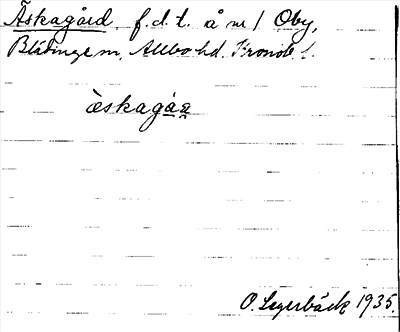 Äskagård f.d.t. å m/ Oby,
Blädinge sn, Allbo hd. Kronob l.
èskagáʀ
O. Sagerbäck 1935.